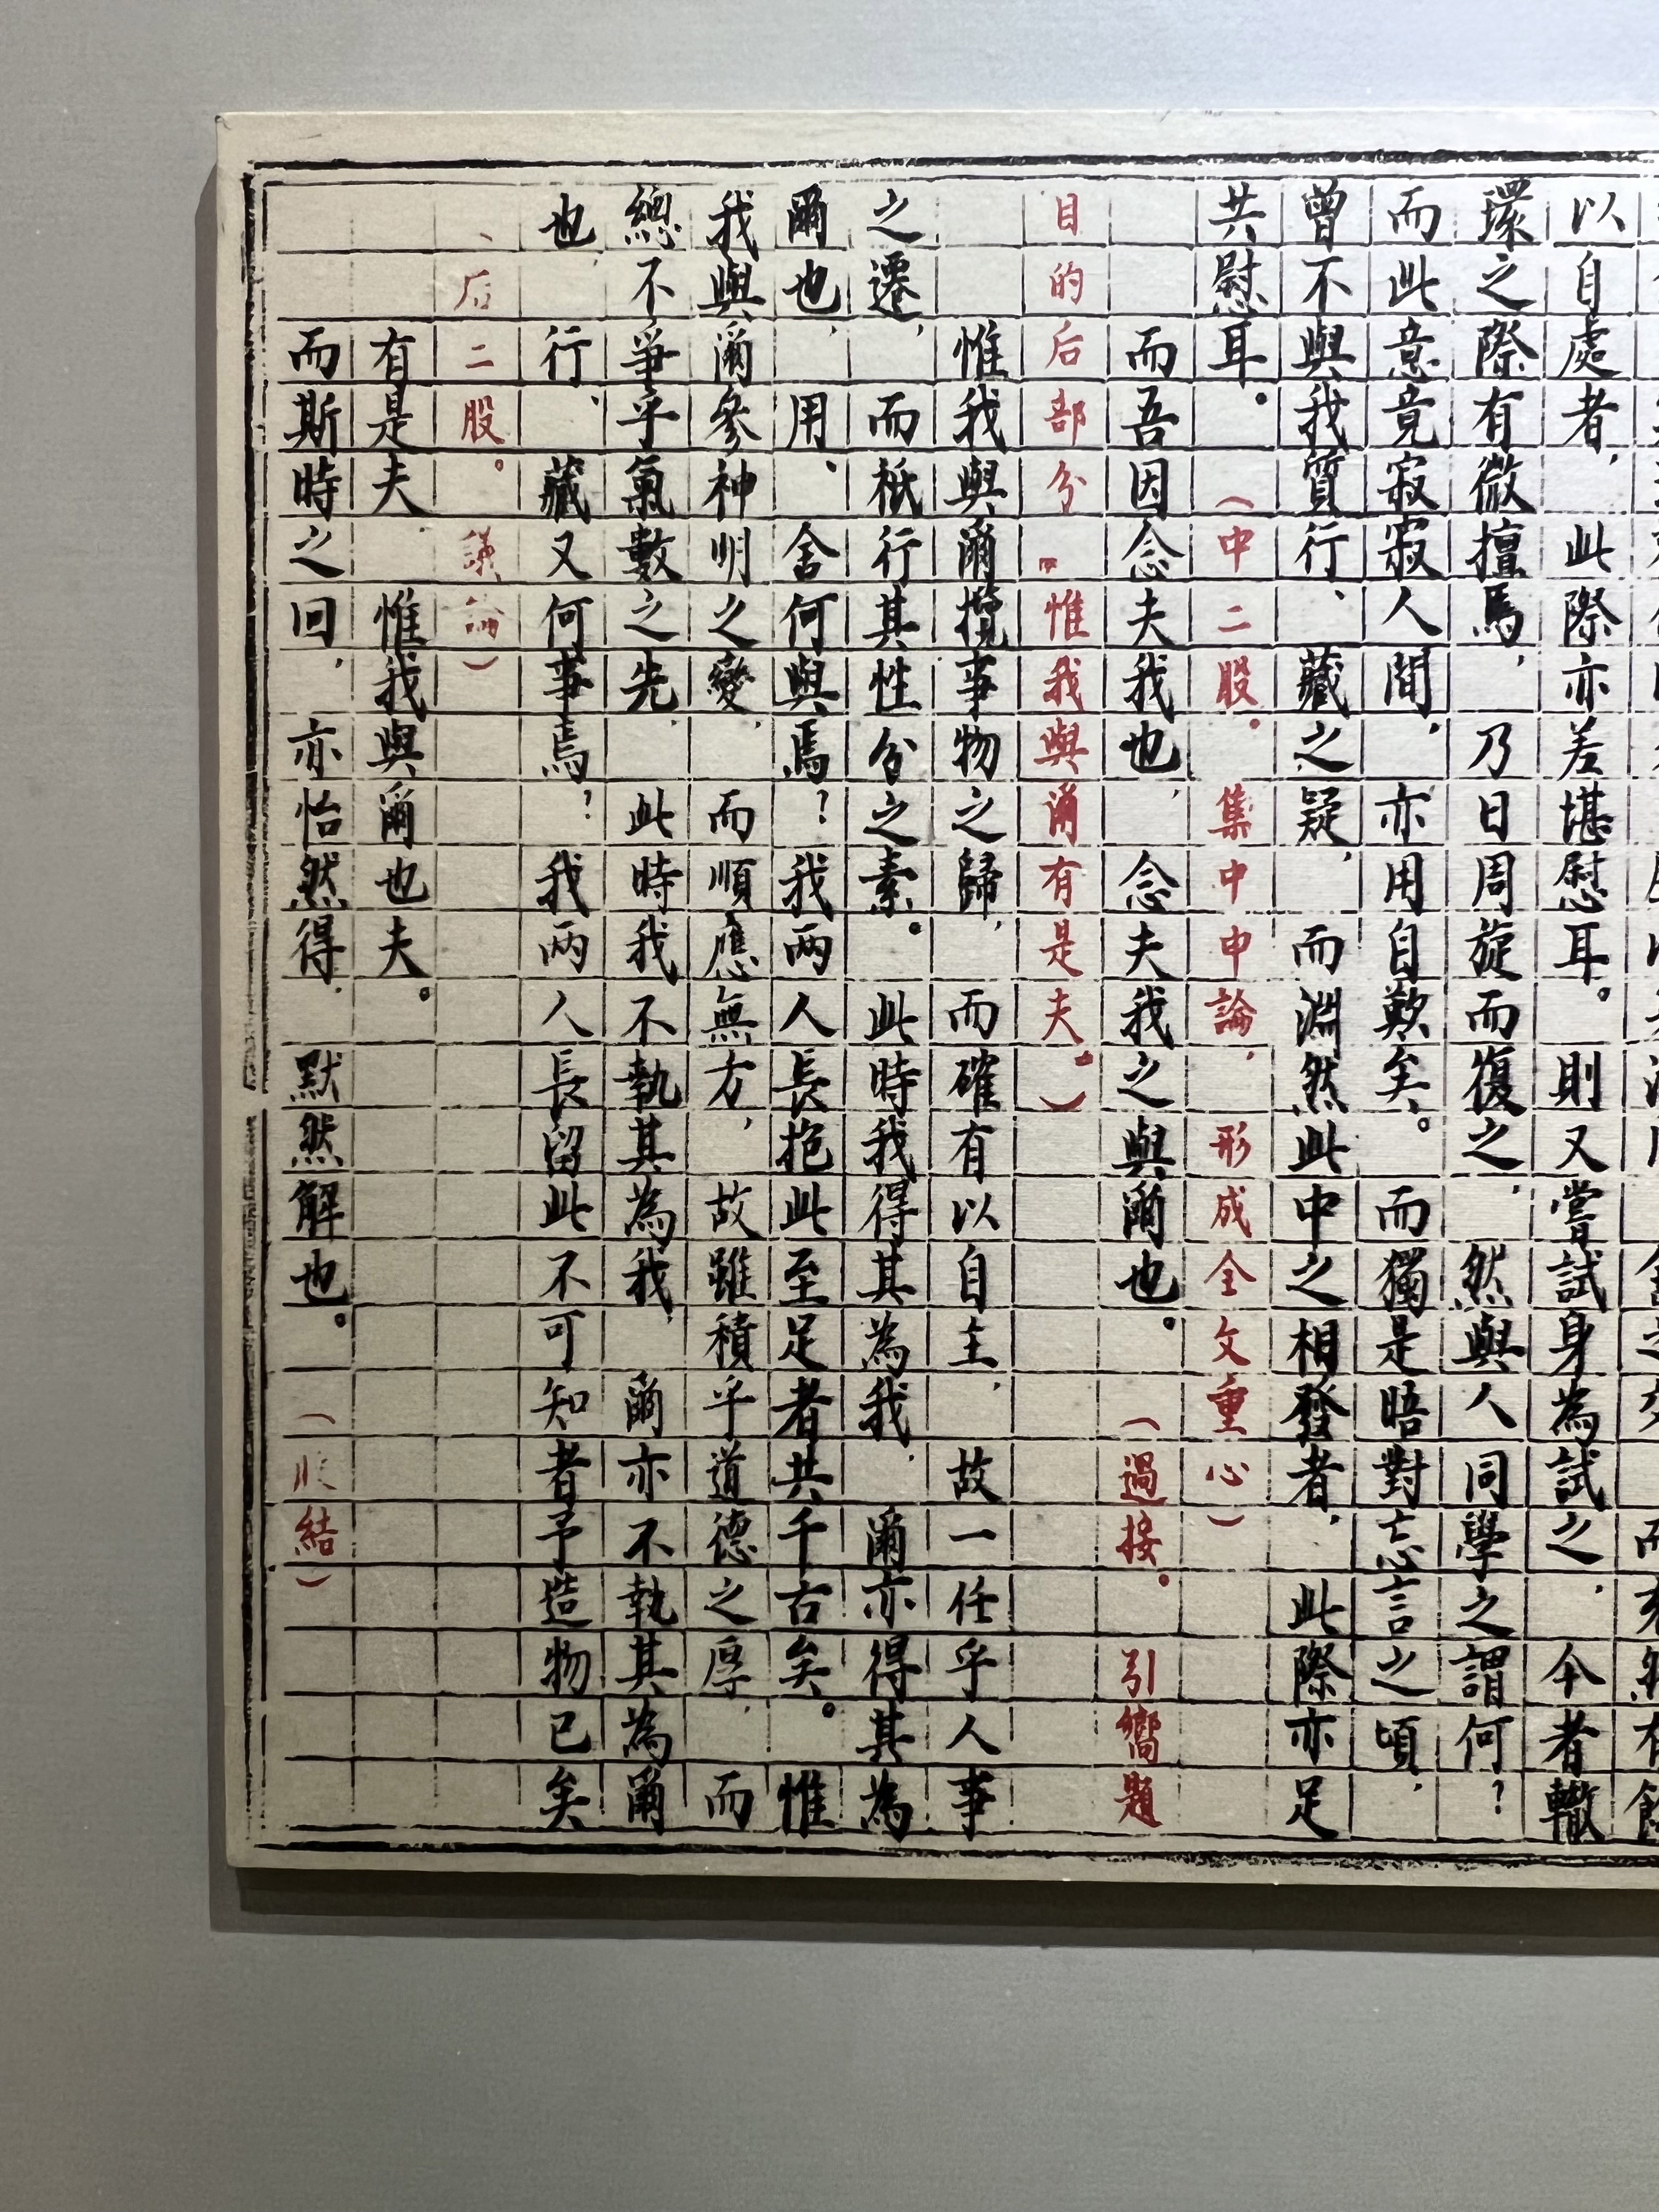 以自處者，此際亦差堪慰耳。則又嘗試身為試之，今者轍
環之際有微擅馬，乃日周旋而復之，然與人同學之謂何？
而此意竟寂寂人間，亦用自歎矣。而獨是晤對忘言之頃，
曾不與我質行、藏之疑，而淵然此中之相發者，此際亦足
共慰耳。（中二股。集中申論，形成全文重心）
而吾因念夫我也，念夫我之與爾也。（過接。引嚮題
目的后部分“惟我與爾有是夫。”）
惟我與爾攬事物之歸，而確有以自主，故一任乎人事
之遷，而祇行其性分之素。此時我得其為我，爾亦得其為
爾也，用、舍何與焉？我兩人長抱此至足者共千古矣。惟
我與爾參神明之變，而順應無方，故雖積乎道德之厚，而
總不爭乎氣數之先，此時我不執其為我，爾亦不執其為爾
也，行、藏又何事焉？我兩人長留此不可知者予造物已矣
、后二股。議論）
有是夫，惟我與爾也夫。
而斯時之回，亦怡然得，默然解也。（收結）